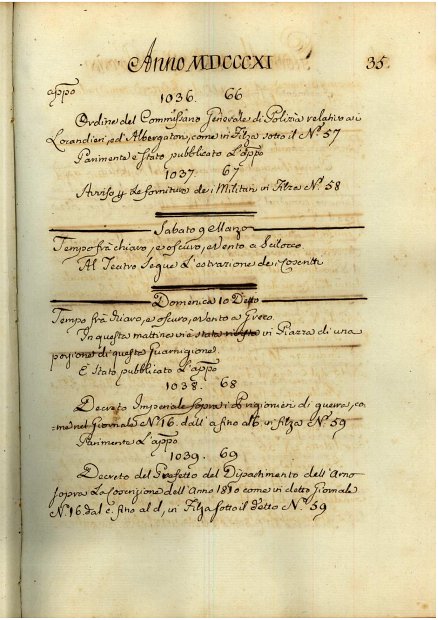 Anno MDCCCXI 35.
appo
1036. 66
Ordine del Commissario Generale di Polizia relativo ai
Locandieri, ed'Albergatori, come in Filza sotto il N.º 57
Parimente è stato pubblicato L'appo
1037. 67
Avviso p le forniture de i Militari in Filza N.º 58
Sabato 9 Marzo
Tempo frà chiaro, e oscuro, e Vento a Scilocco.
Al Teatro Segue L'estrazione de i Coscritti
Domenica 10 Detto
Tempo frà chiaro, e oscuro, e Vento a Greco.
In questa mattina vi è stata rivista in Piazza di una
porzione di questa Guarnigione.
È Stato pubblicato L'appo
1038. 68
Decreto Imperiale sopra i Prigionieri di guerra, co-
me nel Giornale N.º 16. dall' a fino al b, in filza N.º 59
Parimente L'appo
1039. 69
Decreto del Prefetto del Dipartimento dell'Arno
sopra La Coscrizione dell'Anno 1810 come in detto Giornale
N. 16 dal c. fino al d, in Filza sotto il detto N.º 59